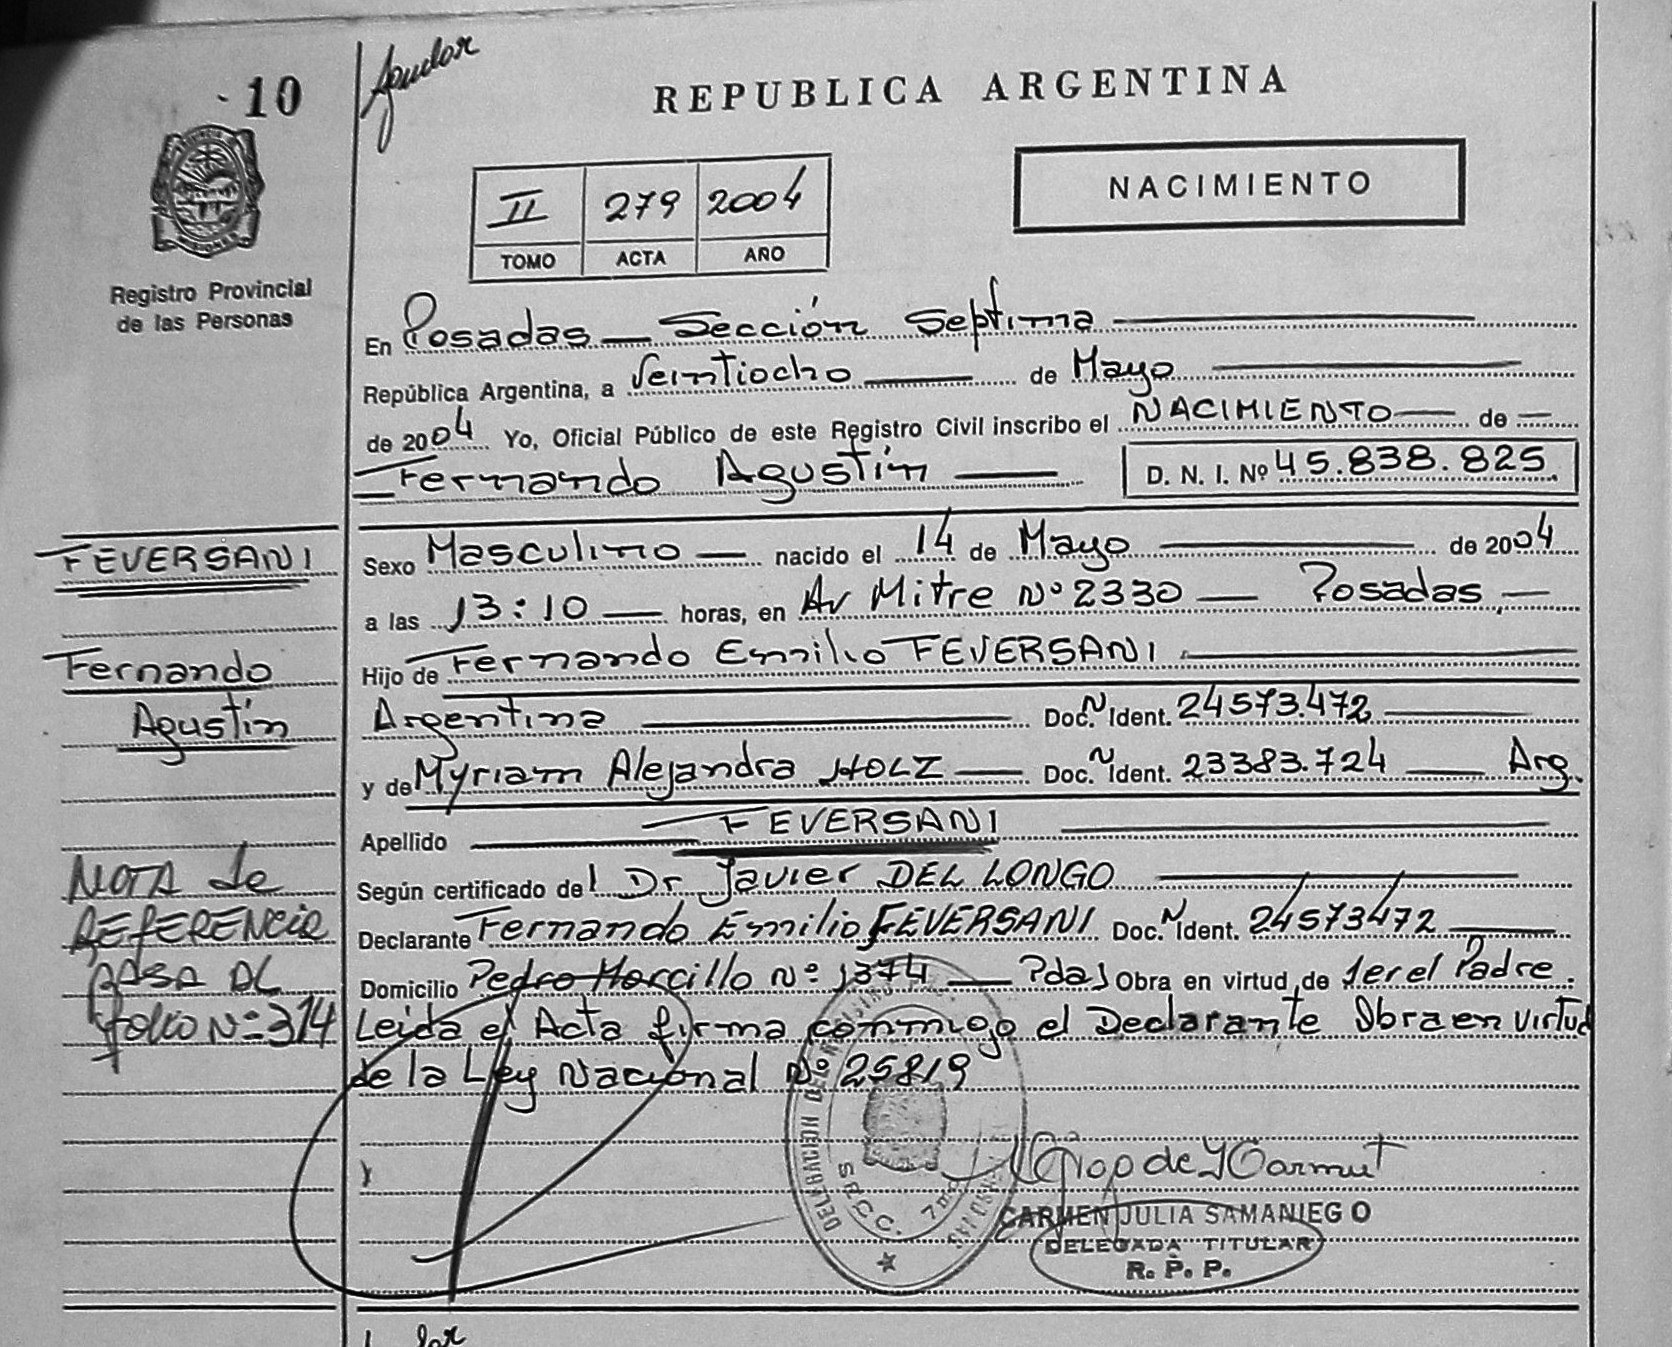 10
REPUBLICA ARGENTINA
II 279 2004
TOMO ACTA AÑO
NACIMIENTO
Registro Provincial
de las Personas
En Posadas — Sección Septima
República Argentina, a Veintiocho — de Mayo
de 2004 Yo, Oficial Público de este Registro Civil inscribo el NACIMIENTO — de —
Fernando Agustín — D. N. I. Nº 45.838.825
FEVERSANI
Fernando
Agustín
Sexo Masculino — nacido el 14 de Mayo — de 2004
a las 13:10 — horas, en Av Mitre Nº 2330 — Posadas —
Hijo de Fernando Emilio FEVERSANI
Argentina — Doc. N Ident. 24573.472 —
y de Myriam Alejandra HOLZ — Doc. N Ident. 23383.724 — Arg.
Apellido — FEVERSANI —
Según certificado del Dr Javier DEL LONGO —
Declarante Fernando Emilio FEVERSANI Doc. N Ident. 24573472 —
Domicilio Pedro Morcillo Nº 1374 — Pdas Obra en virtud de ser el Padre.
Leida el Acta firma conmigo el Declarante Obra en virtud
de la Ley Nacional Nº 25819
NOTA de
REFERENCIA
PASA AL
folio Nº 314
S R C C. 7ma
CARMEN JULIA SAMANIEGO
DELEGADA TITULAR
R. P. P.